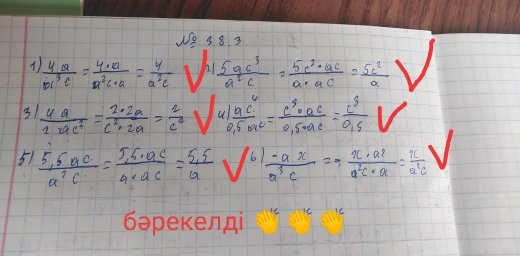 № 38.3
1) 4a/a³c = 4·a/a²c·a = 4/a²c 2) 5ac³/a²c = 5c²·ac/a·ac = 5c²/a
3) 4a/2ac² = 2·2a/c²·2a = 2/c² 4) ac⁴/0,5ac = c³·ac/0,5·ac = c³/0,5
5) 5,5ac/a²c = 5,5·ac/a·ac = 5,5/a 6) -ax/a³c = - x·a/a²c·a = x/a²c
бәрекелді 👏 👏 👏